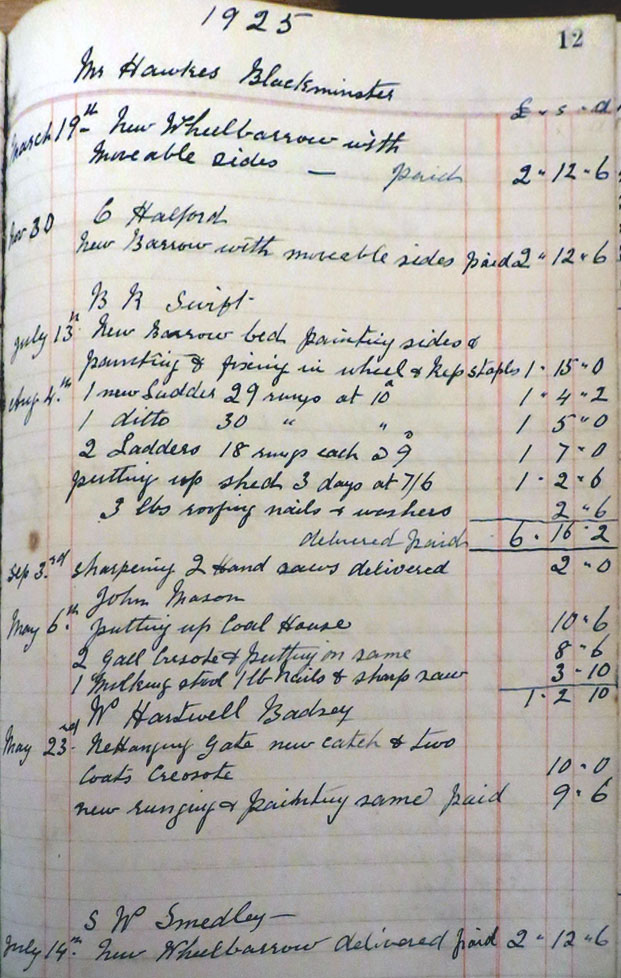 1925
12
Mr Hawkes Blackminster
£ " s " d
March 19th New Wheelbarrow with
Moveable sides — paid 2 " 12 " 6
Nov 30 C Halford
New Barrow with moveable sides paid 2 " 12 " 6
B R Swift
July 13th New Barrow bed painting sides &
painting & fixing in wheel & staples 1 - 15 " 0
Aug 4th 1 new Ladder 29 rungs at 10d 1 " 4 " 2
1 ditto 30 " " 1 5 " 0
2 Ladders 18 rungs each 9d 1 7 " 0
putting up shed 3 days at 7/6 1 - 2 " 6
3 lbs roofing nails & washers 2 " 6
delivered paid 6 - 16 - 2
Sep 3rd sharpening 2 Hand saws delivered 2 " 0
John Mason
May 6th putting up Coal House 10 " 6
2 Gall Creosote & putting on same 8 " 6
1 Milking stool 1 lb Nails & sharp saw 3 - 10
1 - 2 10
W Hartwell Badsey
May 23rd ReHanging Gate new catch & two
Coats Creosote 10 " 0
new runging & painting same paid 9 " 6
S W Smedley —
July 14th New Wheelbarrow delivered paid 2 " 12 " 6